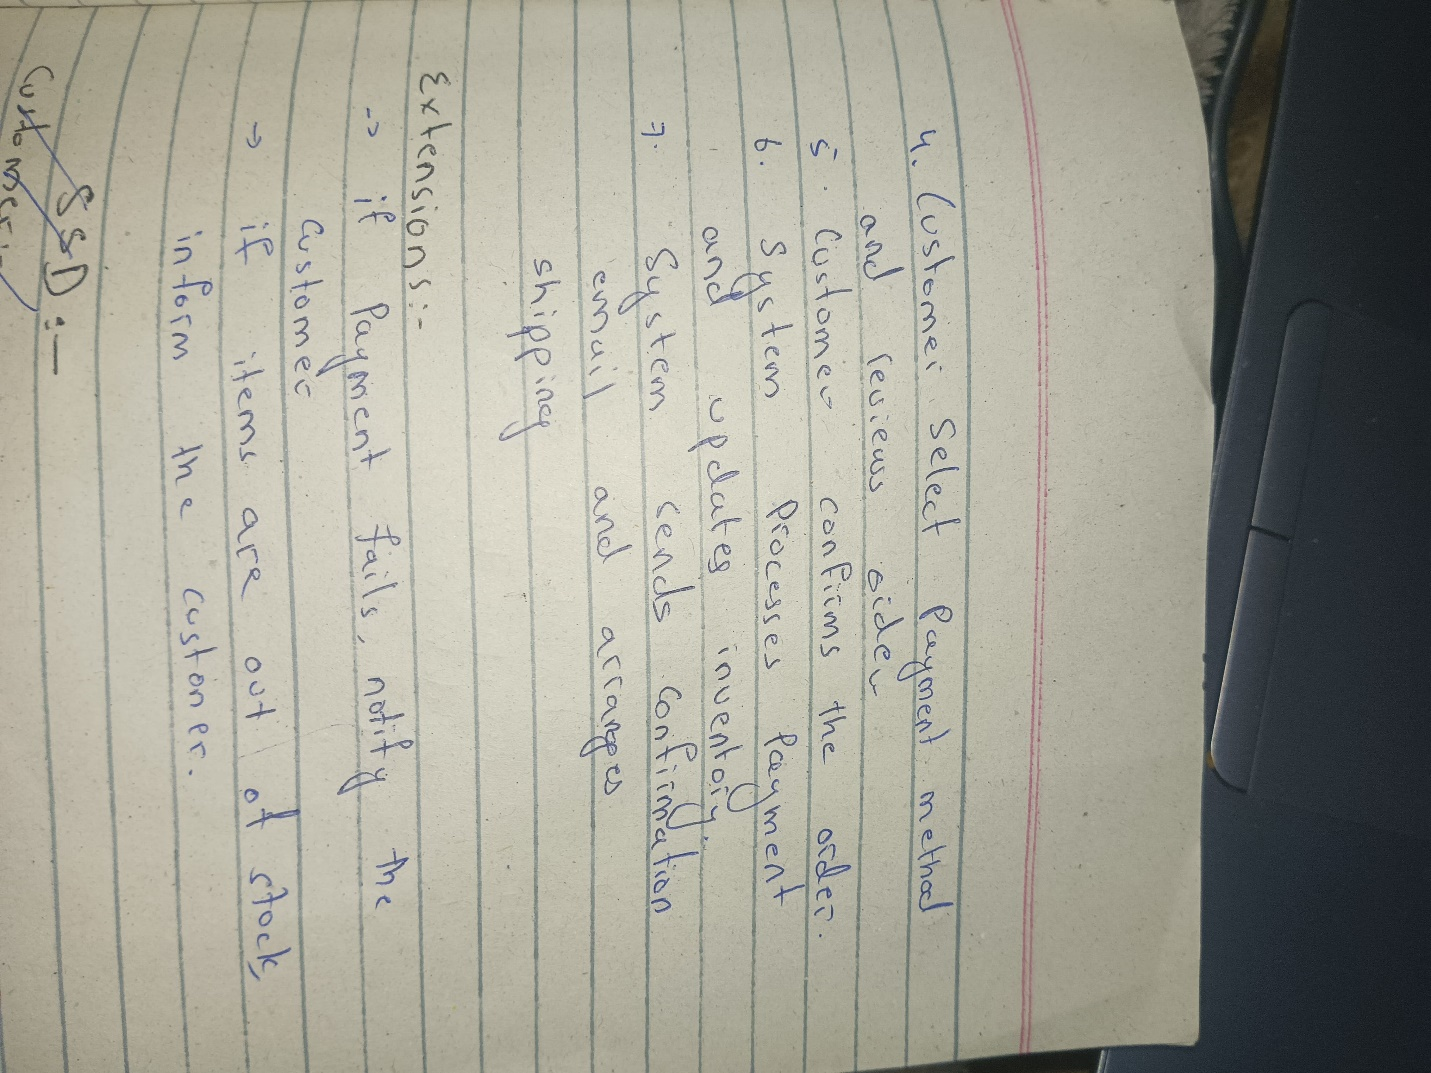 4. Customer Select Payment method
and reviews order
5. Customer confirms the order.
6. System Processes Payment
and updates inventory.
7. System sends Confirmation
email and arranges
shipping
Extensions:-
-> if Payment fails, notify the
Customer
-> if items are out of stock,
inform the customer.
SSD:-
Customer